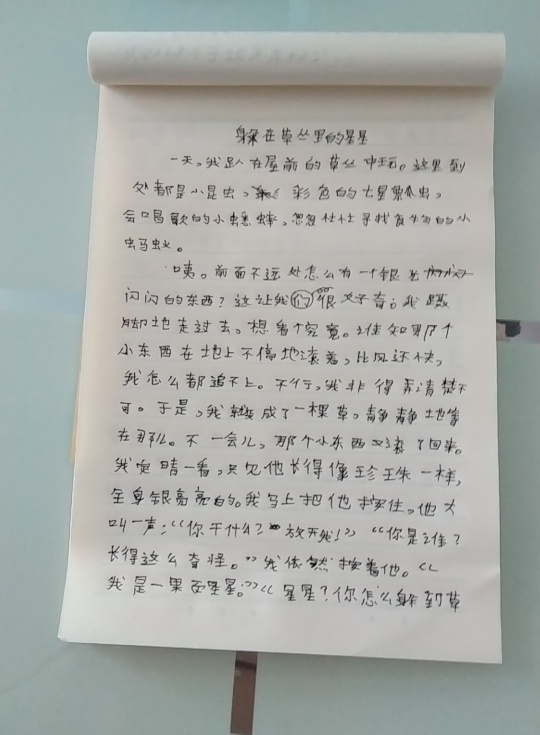 躲在草丛里的星星
一天，我趴在屋前的草丛中玩。这里到
处都是小昆虫，彩色的七星瓢虫，
会唱歌的小蟋蟀，忽忽忙忙寻找食物的小
蚂蚁。
咦。前面不远处怎么有一个银光
闪闪的东西？这让我们很好奇；我蹑
脚地走过去，想看个究竟。谁知那个
小东西在地上不停地滚着，比风还快，
我怎么都追不上。不行，我非得弄清楚不
可。于是，我就变成了一棵草，静静地等
在那儿。不一会儿，那个小东西又滚了回来。
我定睛一看，只见他长得像珍珠一样，
全身银亮亮的。我马上把他按住，他大
叫一声：“你干什么？放开我！”“你是谁？
长得这么奇怪。”我依然按着他。“
我是一果星星。”“星星？你怎么躲到草